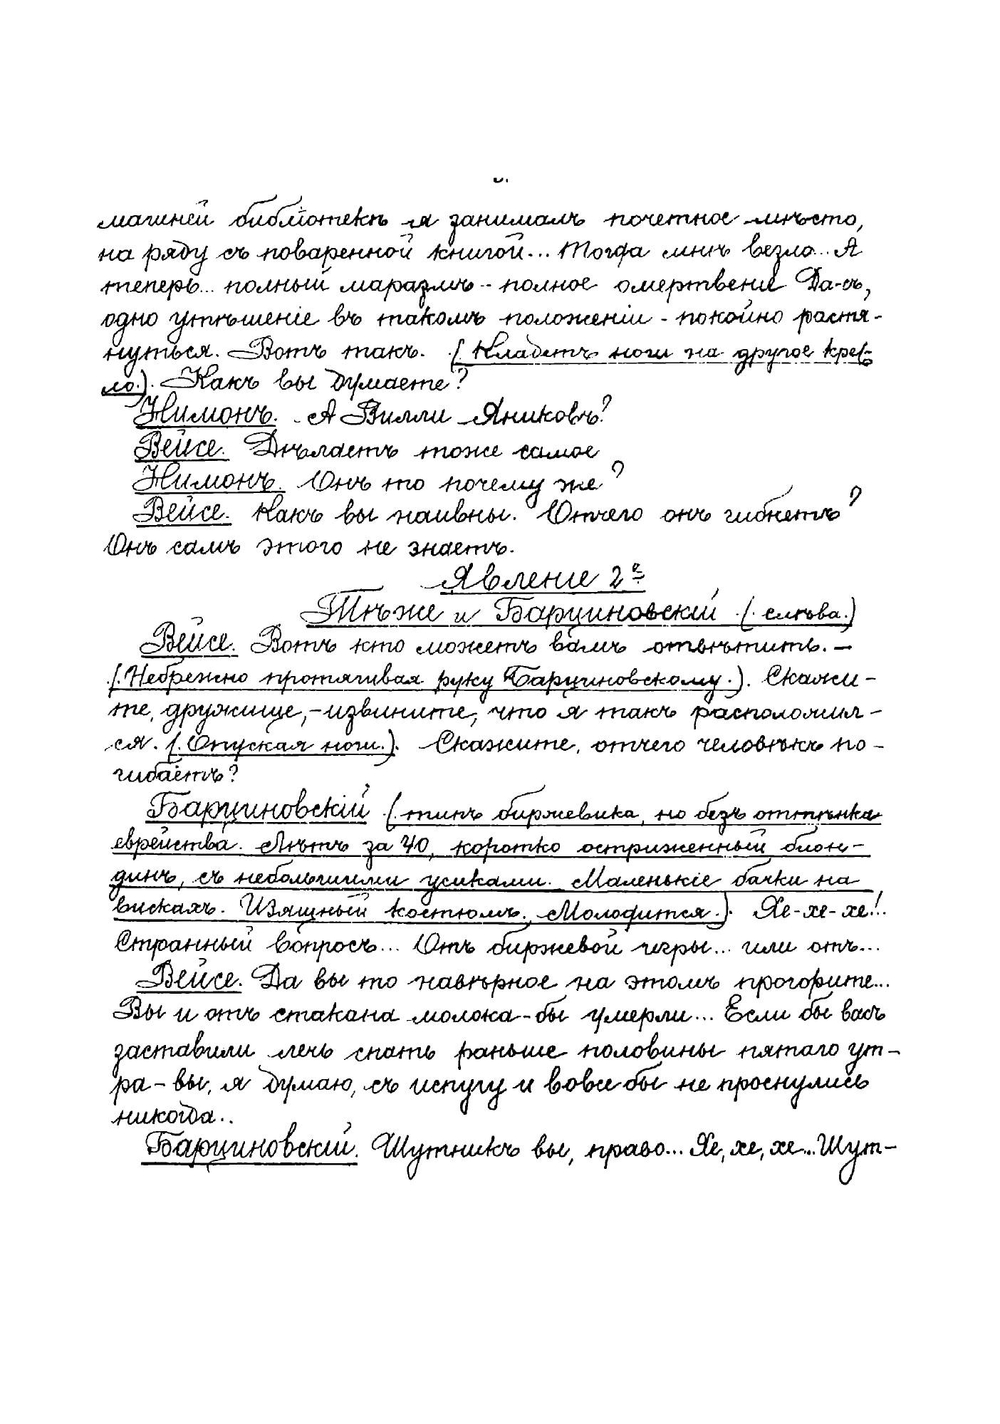 машней библіотекѣ я занималъ почетное мѣсто,
на ряду съ поваренной книгой... Тогда мнѣ везло... А
теперь... полный маразмъ - полное омертвение Да-съ,
одно утѣшеніе въ такомъ положеніи - покойно растя-
нуться. Вотъ такъ. (Кладетъ ноги на другое крес-
ло.). Какъ вы думаете?
Нимонъ. А Вилли Яниковъ?
Вейсе. Дѣлаетъ тоже самое
Нимонъ. Онъ то почему же?
Вейсе. Какъ вы наивны. Отчего онъ гибнетъ?
Онъ самъ этого не знаетъ.
Явление 2е
Тѣже и Барциновскій (слѣва.)
Вейсе. Вотъ кто можетъ вамъ отвѣтить. -
(Небрежно протягивая руку Барциновскому.). Скажи-
те, дружище, - извините, что я такъ расположил-
ся. (Опуская ноги.). Скажите, отчего человѣкъ по-
гибаетъ?
Барциновскій (типъ биржевика, но безъ оттѣнка
еврейства. Лѣтъ за 40, коротко остриженный блон-
динъ, съ небольшими усиками. Маленькіе бачки на
вискахъ. Изящный костюмъ. Молодится.). Хе-хе-хе!..
Странный вопросъ... Отъ биржевой игры... или отъ...
Вейсе. Да вы то навѣрное на этомъ прогорите...
Вы и отъ стакана молока-бы умерли... Если бы васъ
заставили лечь спать раньше половины пятаго ут-
ра - вы, я думаю, съ испугу и вовсе бы не проснулись
никогда..
Барциновскій. Шутникъ вы, право... Хе, хе, хе... Шут-